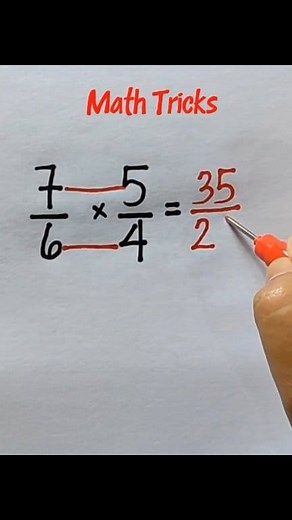 Math Tricks
7/6 × 5/4 = 35/2